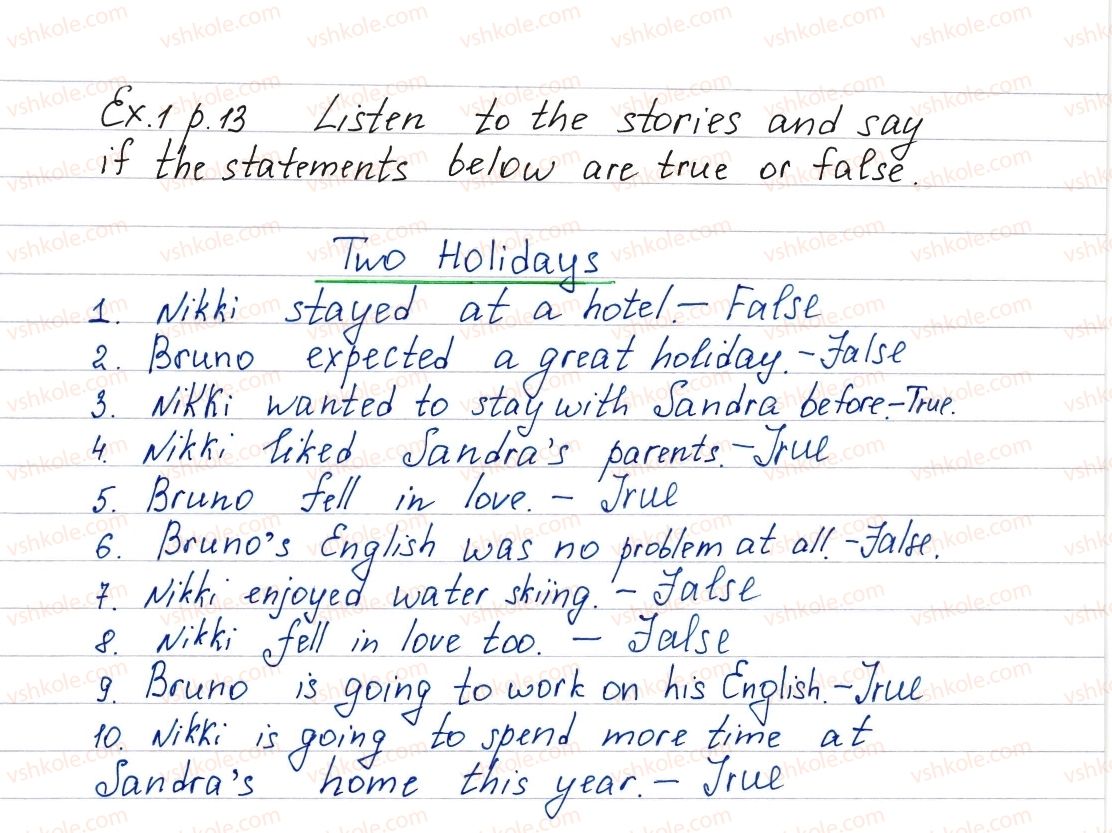 Ex.1 p.13 Listen to the stories and say
if the statements below are true or false.
Two Holidays
1. Nikki stayed at a hotel. – False
2. Bruno expected a great holiday. – False
3. Nikki wanted to stay with Sandra before. – True.
4. Nikki liked Sandra's parents. – True
5. Bruno fell in love. – True
6. Bruno's English was no problem at all. – False.
7. Nikki enjoyed water skiing. – False
8. Nikki fell in love too. – False
9 Bruno is going to work on his English. – True
10. Nikki is going to spend more time at
Sandra's home this year. – True